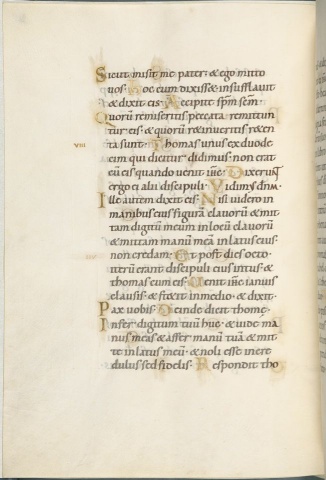 Sicut misit me pater· & ego mitto
uos· Hoc cum dixiss& insufflauit
& dixit eis· Accipite sp̄m sc̄m·
Quorū remiseritis peccata remittun
tur eis· & quorū r&inueritis r&en
ta sunt· Thomas unus ex duode
VIII
cim qui dicitur didimus non erat
cū eis quando uenit ih̄c· Dixerunt
ergo ei alii discipuli· Vidimus dn̄m·
Ille autem dixit eis· Nisi uidero in
manibus eius figurā clauorū & mit
tam digitū meum in locū clauorū
& mittam manū meā in latus eius·
non credam· Et post dies octo·
iterū erant discipuli eius intus· &
thomas cum eis· Uenit ih̄c ianuis
clausis· & st&it in medio· & dixit·
Pax uobis· Deinde dicit thome·
Infer digitum tuū huc· & uide ma
nus meas & affer manū tuā & mit
te in latus meū· & noli esse incre
dulus sed fidelis· Respondit tho